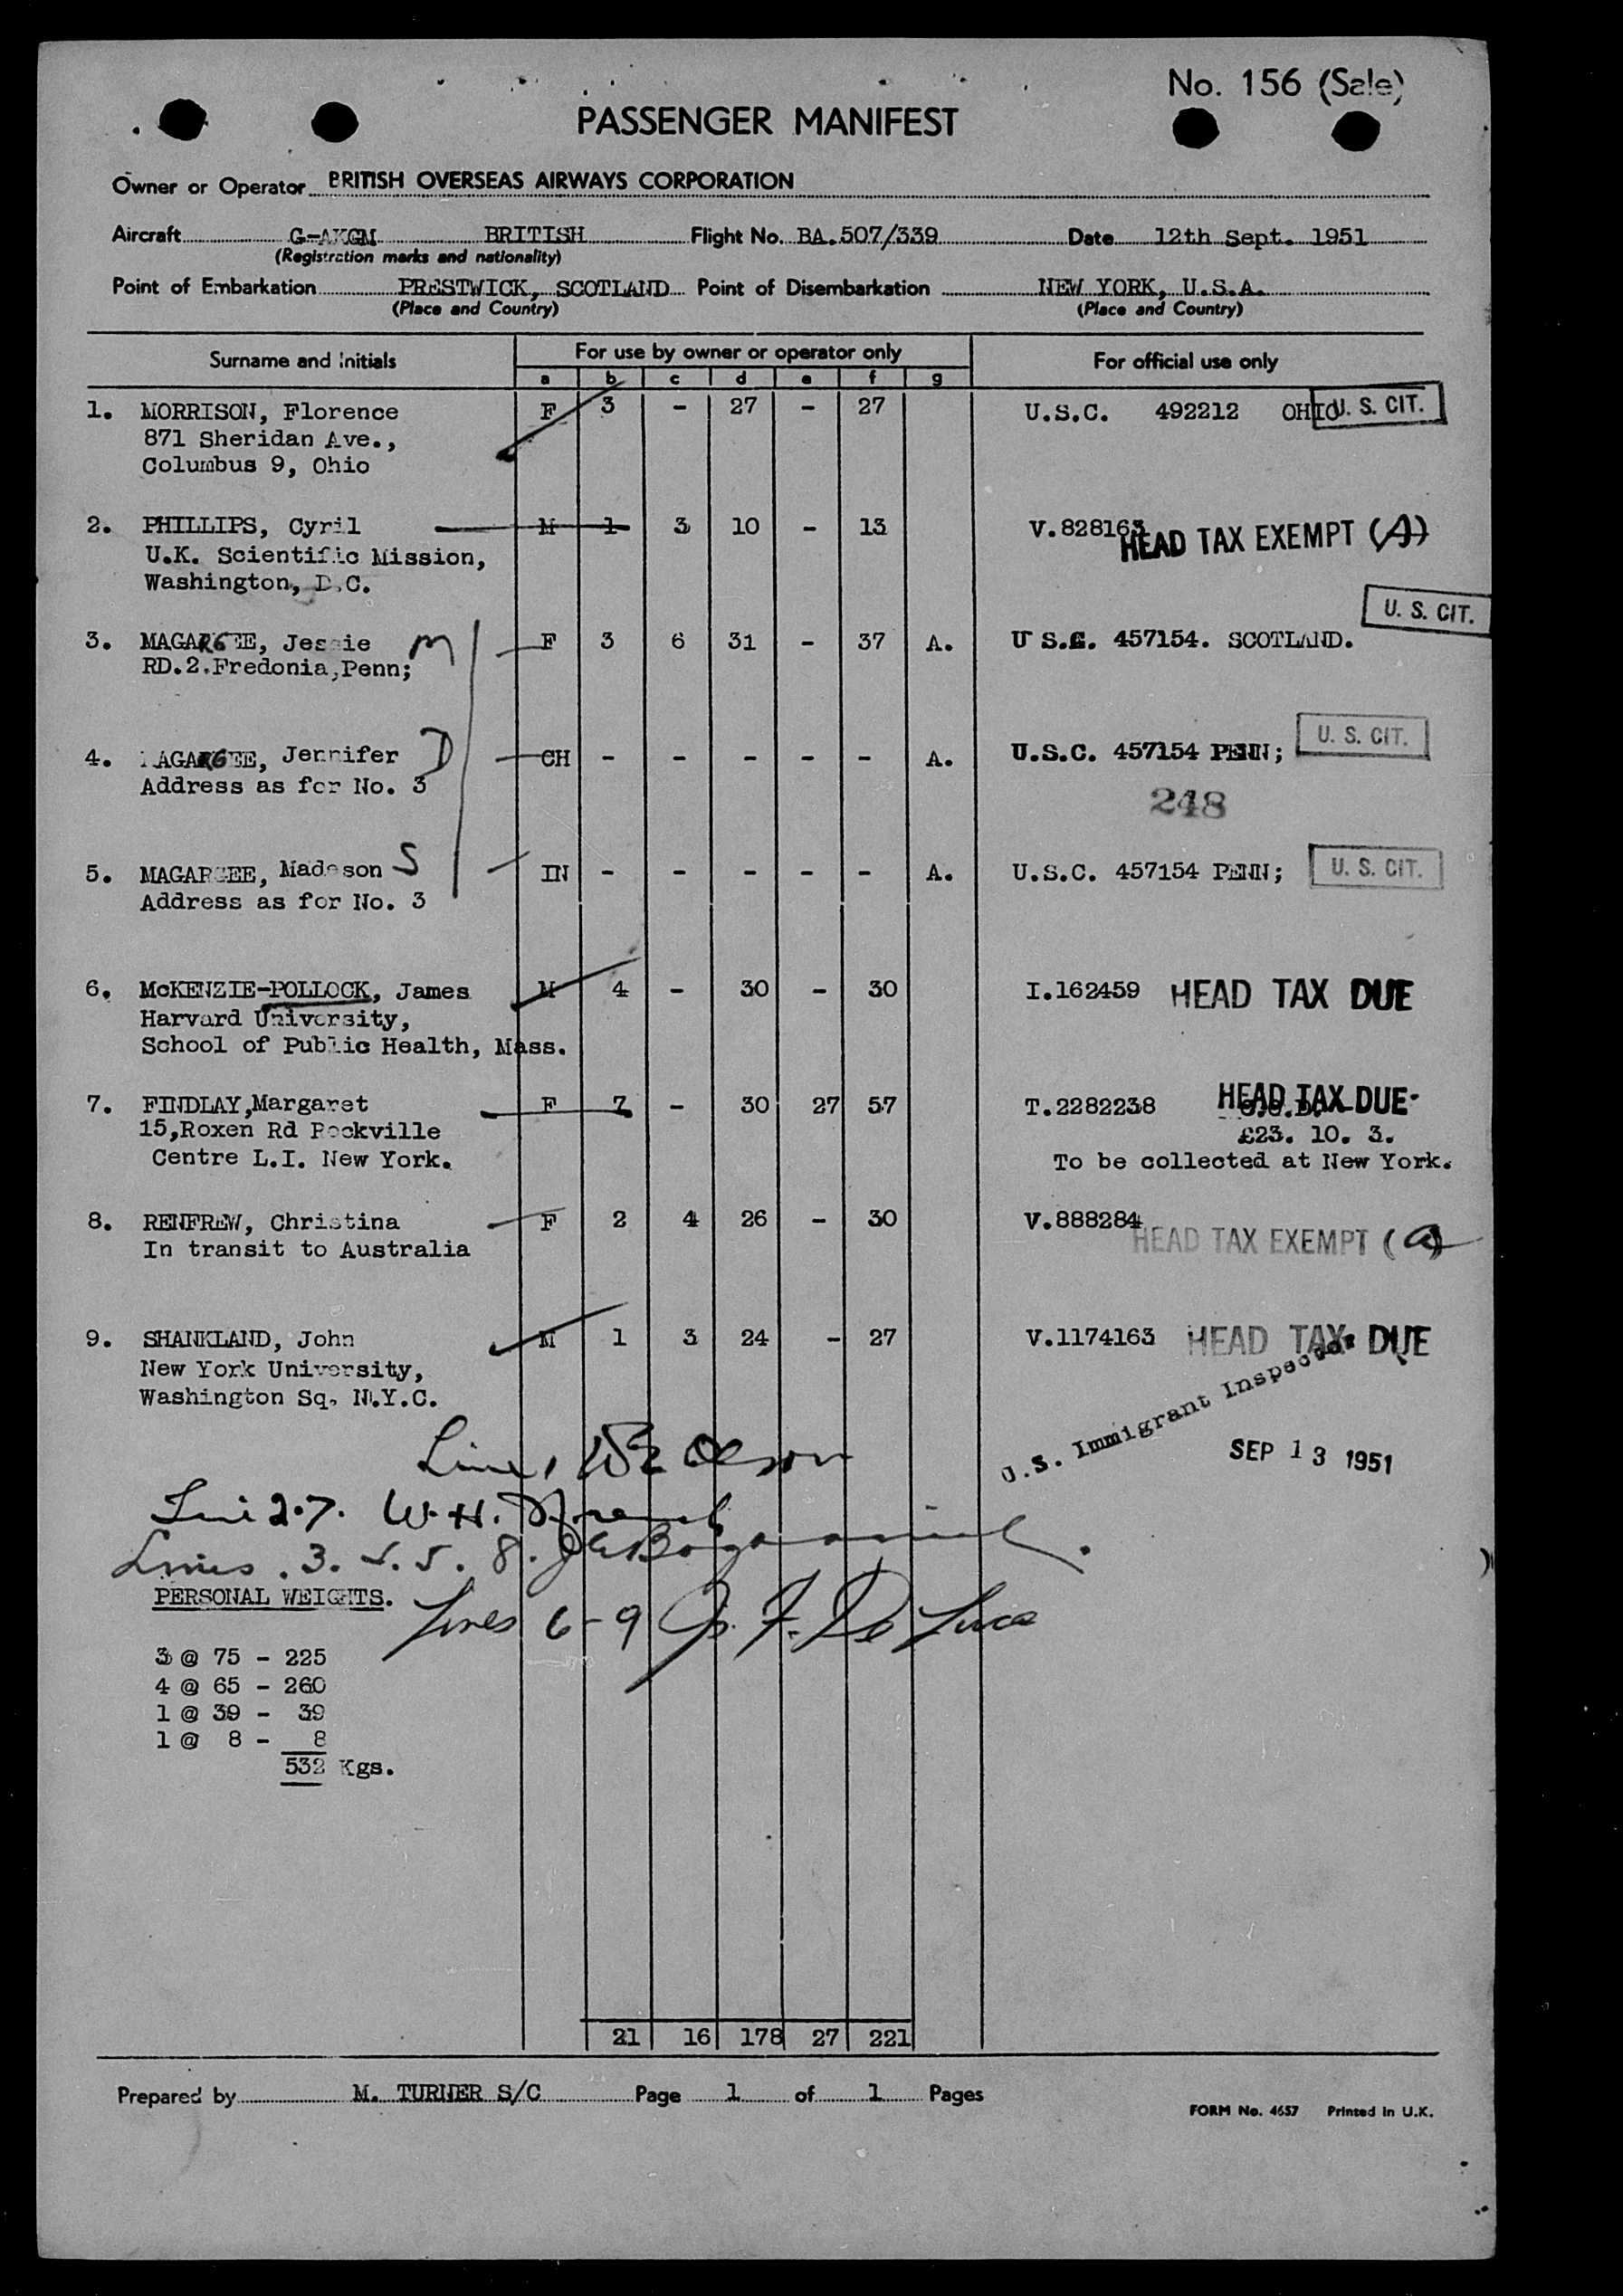 No. 156 (Sale)
PASSENGER MANIFEST
Owner or Operator BRITISH OVERSEAS AIRWAYS CORPORATION
Aircraft G-AKGM BRITISH Flight No. BA.507/339 Date 12th Sept. 1951
(Registration marks and nationality)
Point of Embarkation PRESTWICK, SCOTLAND Point of Disembarkation NEW YORK, U.S.A.
(Place and Country) (Place and Country)
Surname and Initials For use by owner or operator only For official use only
a b c d e f g
1. MORRISON, Florence F 3 - 27 - 27 U.S.C. 492212 OHIO U. S. CIT.
871 Sheridan Ave.,
Columbus 9, Ohio
2. PHILLIPS, Cyril M 1 3 10 - 13 V.828163 HEAD TAX EXEMPT (A)
U.K. Scientific Mission,
Washington, D.C.
U. S. CIT.
3. MAGARGEE, Jessie M F 3 6 31 - 37 A. U.S.C. 457154. SCOTLAND.
RD.2.Fredonia,Penn;
4. MAGARGEE, Jennifer D CH - - - - - A. U.S.C. 457154 PENN; U. S. CIT.
Address as for No. 3
248
5. MAGARGEE, Madeson S IN - - - - - A. U.S.C. 457154 PENN; U. S. CIT.
Address as for No. 3
6. McKENZIE-POLLOCK, James M 4 - 30 - 30 I.162459 HEAD TAX DUE
Harvard University,
School of Public Health, Mass.
7. FINDLAY,Margaret F 7 - 30 27 57 T.2282238 HEAD TAX DUE
15,Roxen Rd Rockville £23. 10. 3.
Centre L.I. New York. To be collected at New York.
8. RENFREW, Christina F 2 4 26 - 30 V.888284 HEAD TAX EXEMPT (a)
In transit to Australia
9. SHANKLAND, John M 1 3 24 - 27 V.1174163 HEAD TAX DUE
New York University,
Washington Sq. N.Y.C.
U.S. Immigrant Inspector
SEP 13 1951
Line 1 Olson
Line 2-7. W.H.
Lines 3. 4. 5. 8.
PERSONAL WEIGHTS.
Lines 6-9 F. De Luca
3 @ 75 - 225
4 @ 65 - 260
1 @ 39 - 39
1 @ 8 - 8
532 Kgs.
21 16 178 27 221
Prepared by M. TURNER S/C Page 1 of 1 Pages
FORM No. 4657 Printed in U.K.